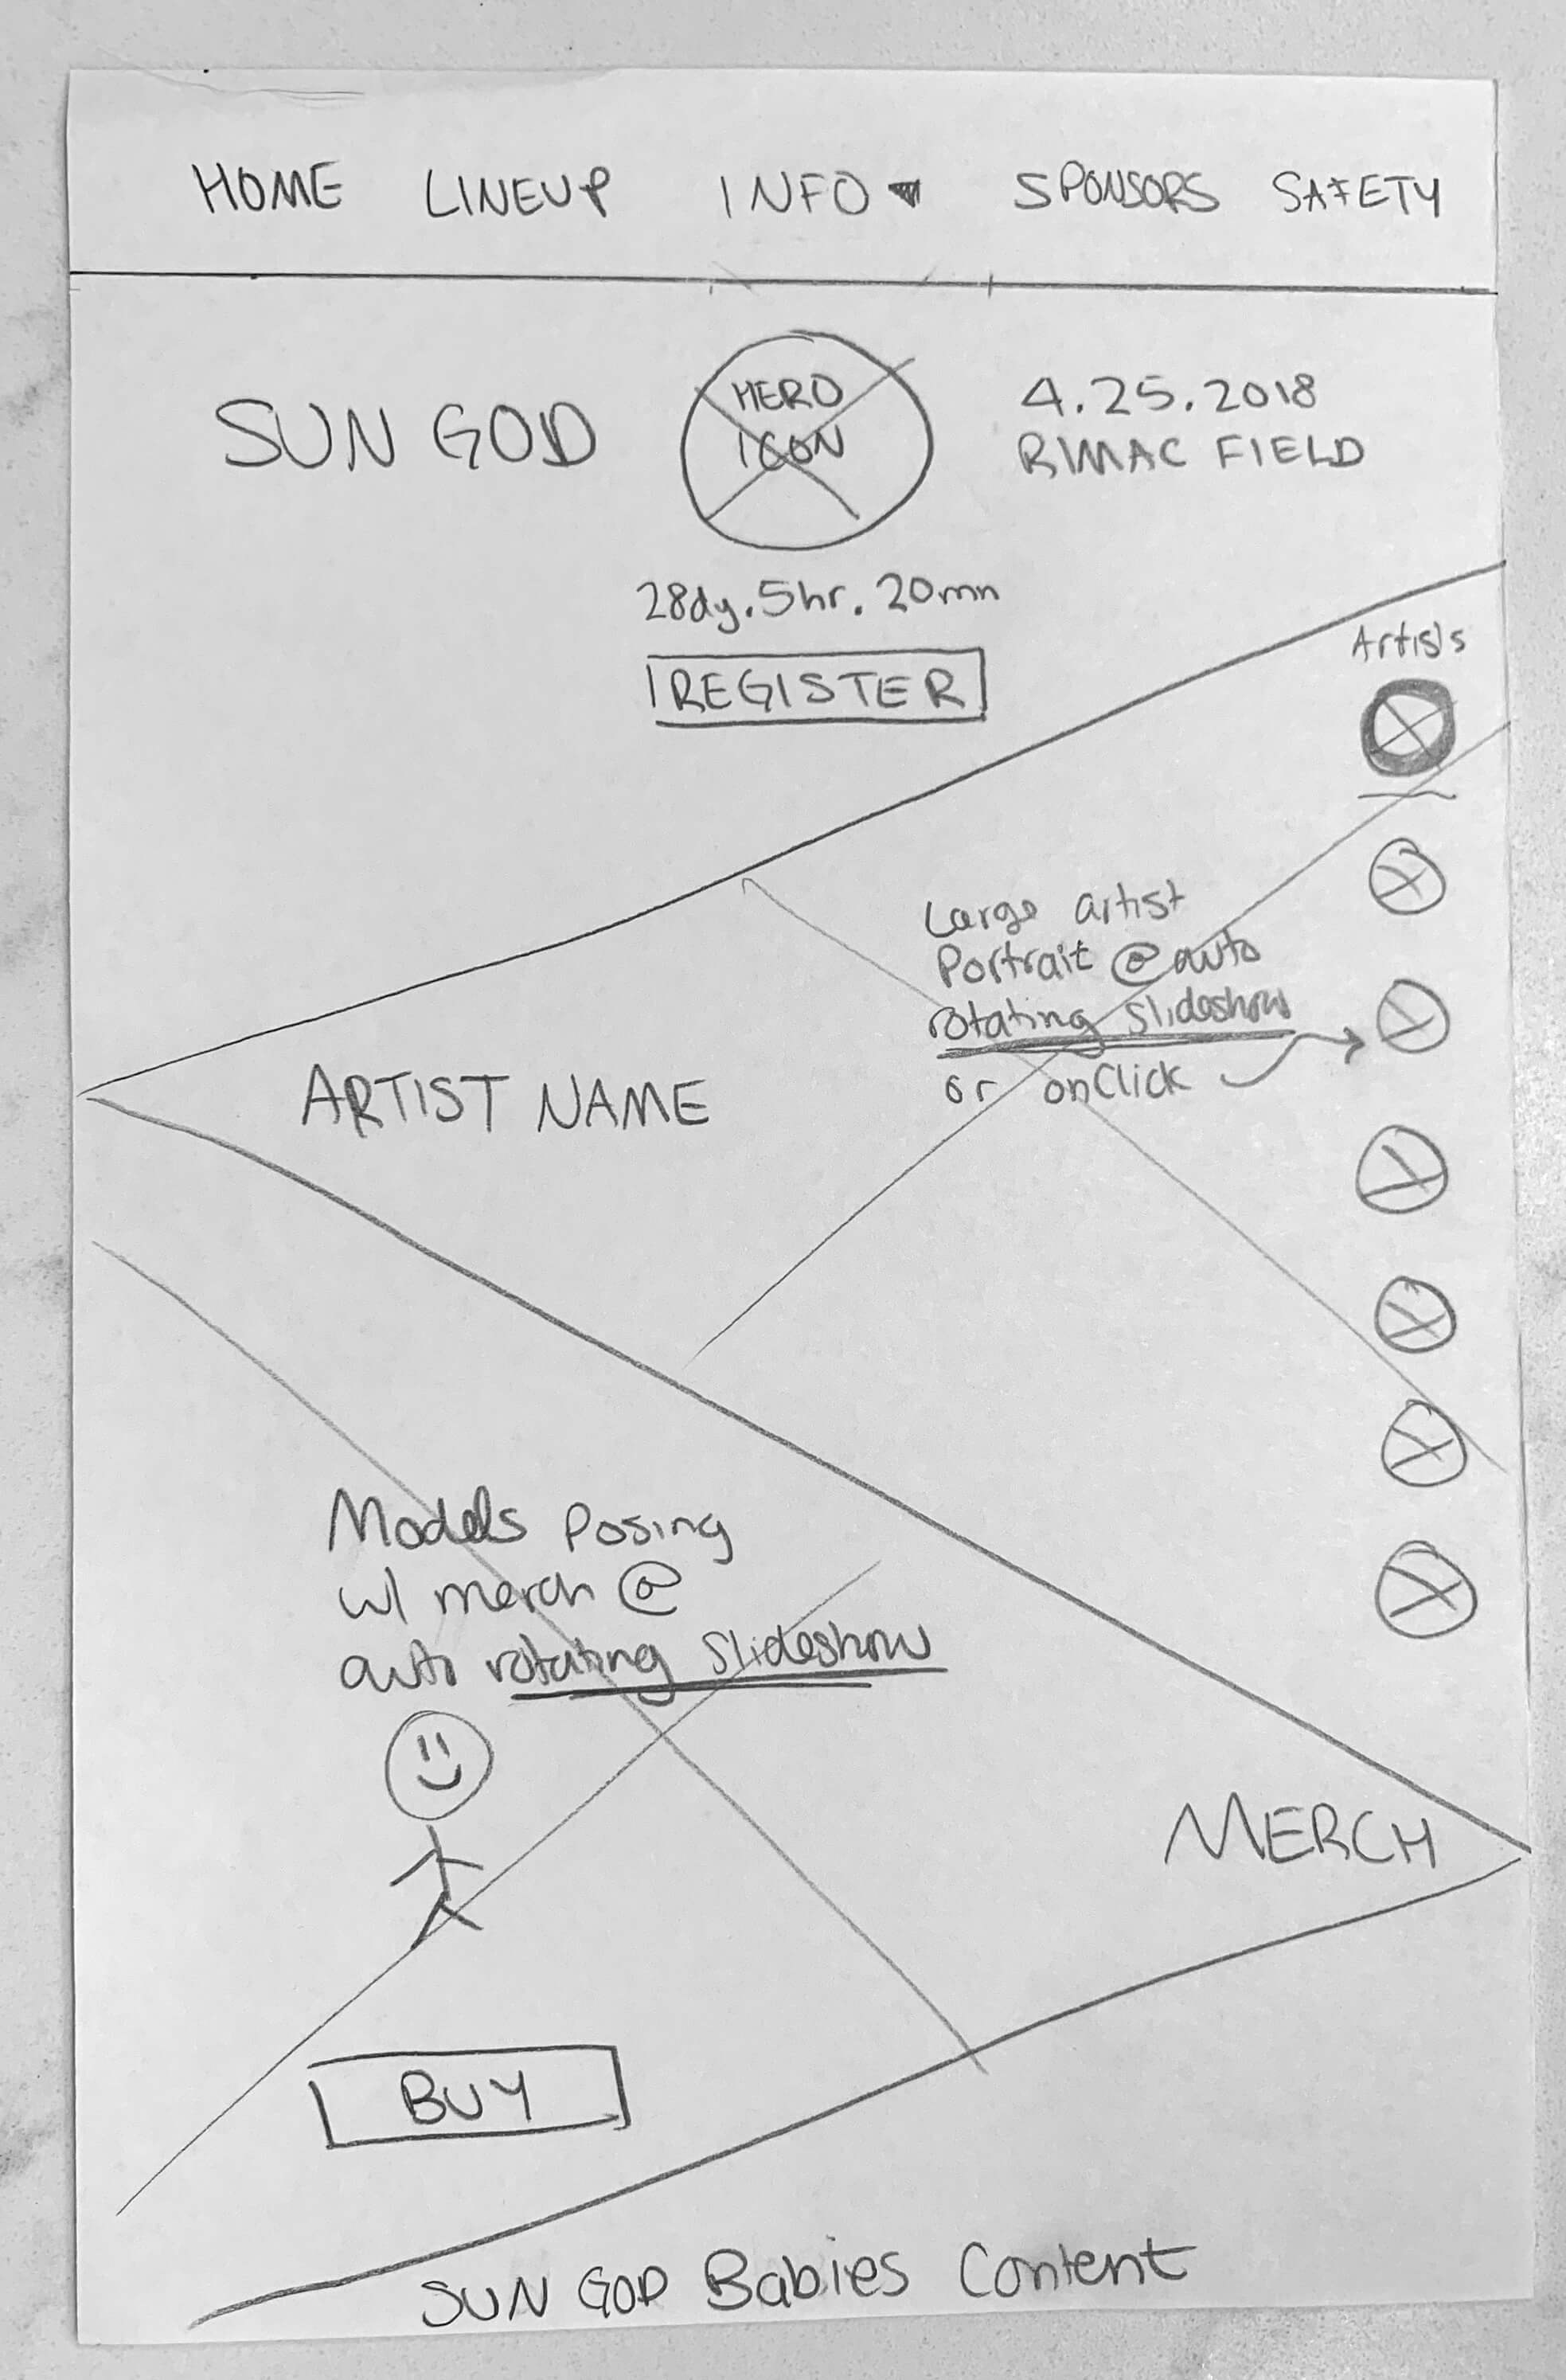 HOME LINEUP INFO SPONSORS SAFETY
SUN GOD
HERO
ICON
4.25.2018
RIMAC FIELD
28dy.5hr.20mn
REGISTER
Artists
Large artist
Portrait @ auto
rotating slideshow
or onClick
ARTIST NAME
Models Posing
w/ merch @
auto rotating slideshow
MERCH
BUY
SUN GOD Babies Content